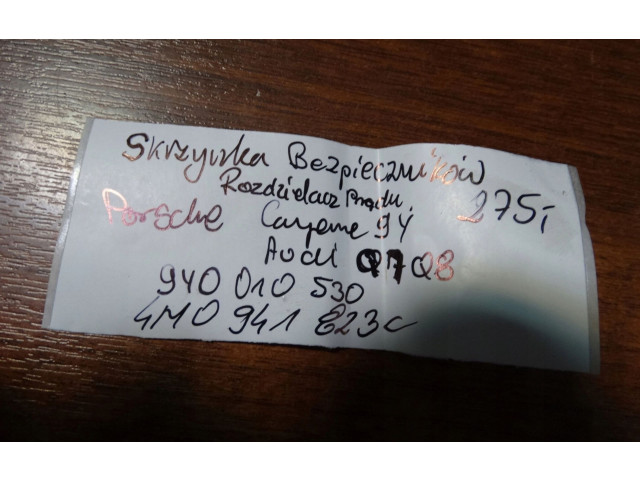 Skrzynka Bezpieczników
Rozdzielacz Prądu. 275,-
Porsche Cayenne 9Y
Audi Q7 Q8
9Y0 010 530
4M0 941 823C